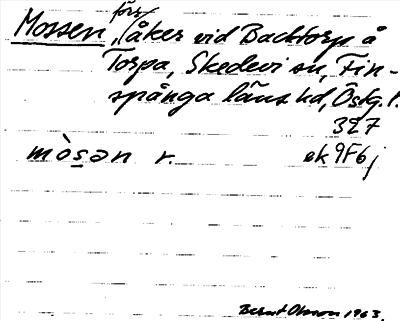 förs.
Mossen, åker vid Backtorp å
Torpa, Skedevi sn, Fin-
spånga läns hd, Östg. l.
327
mòs̱ən r. ek 9F6j
Bernt Olsson 1963.